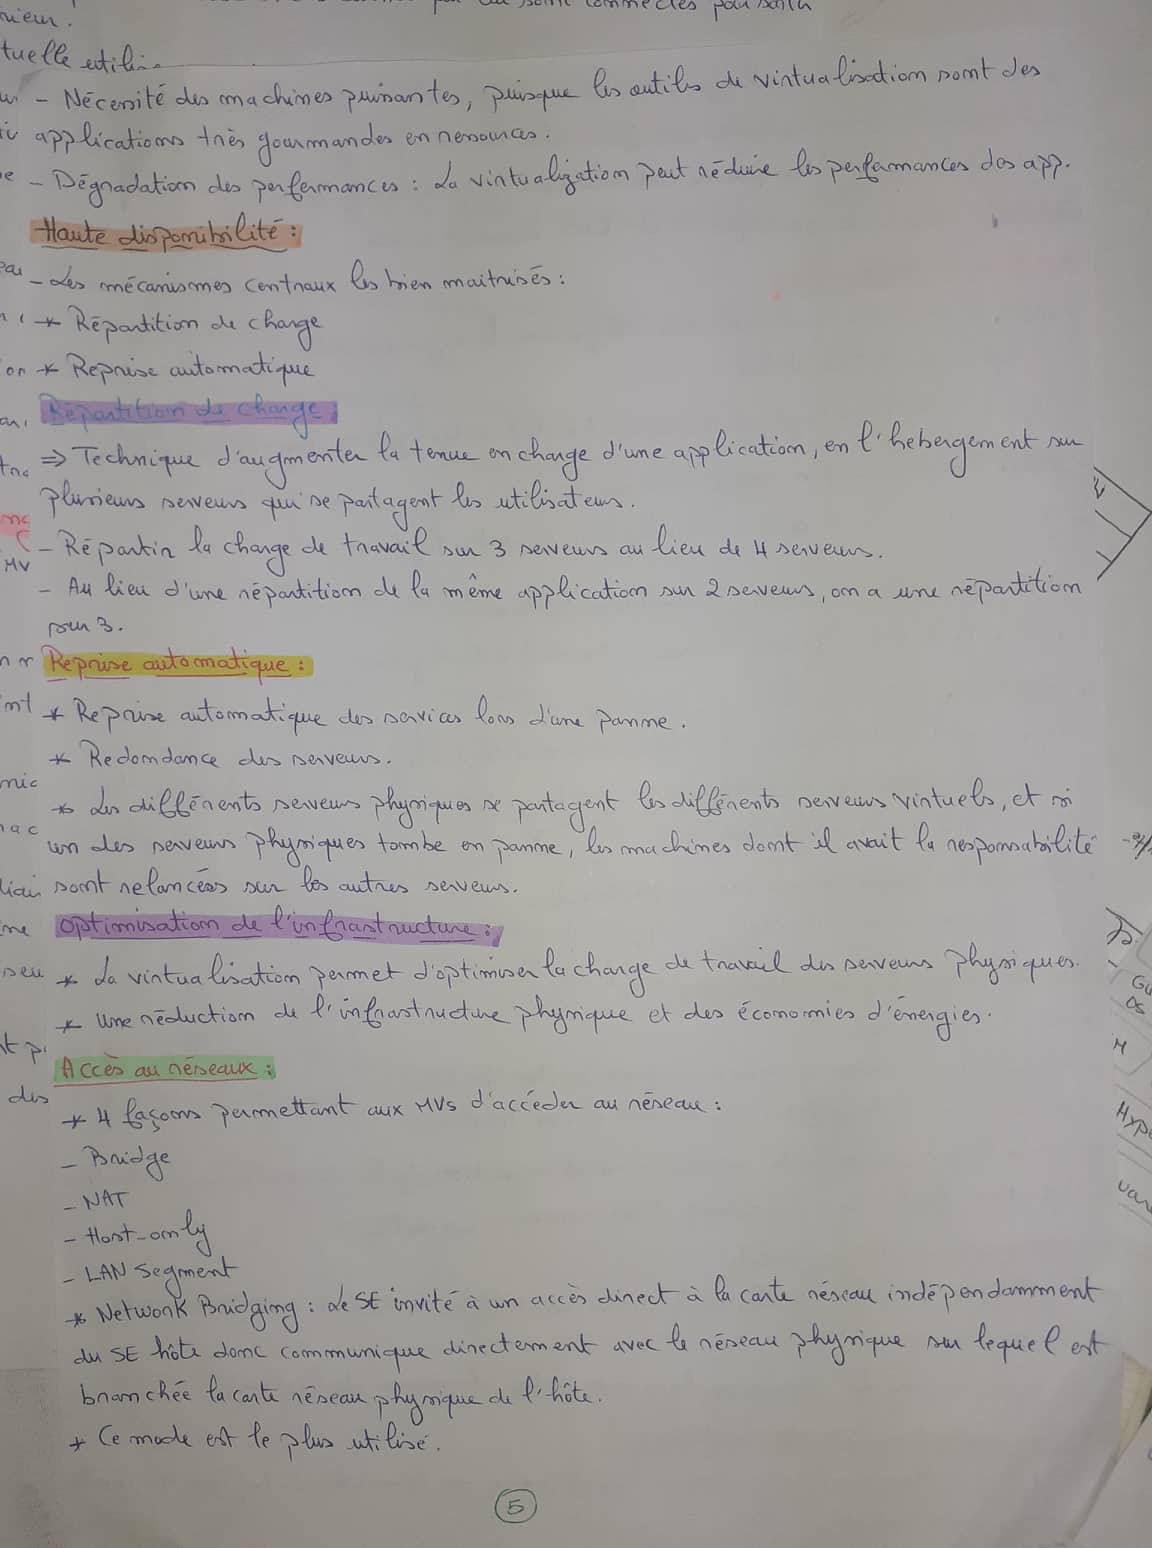 - Nécessité des machines puissantes, puisque les outils de virtualisation sont des
applications très gourmandes en ressources.
- Dégradation des performances : La virtualization peut réduire les performances des app.
Haute disponibilité :
- Les mécanismes centraux les bien maitrisés :
* Répartition de charge
* Reprise automatique
Répartition de charge :
⇒ Technique d'augmenter la tenue en charge d'une application, en l'hebergement sur
plusieurs serveurs qui se partagent les utilisateurs.
- Répartir la charge de travail sur 3 serveurs au lieu de 4 serveurs.
- Au lieu d'une répartition de la même application sur 2 serveurs, on a une répartition
sur 3.
Reprise automatique :
* Reprise automatique des services lors d'une panne.
* Redondance des serveurs.
* Les différents serveurs physiques se partagent les différents serveurs virtuels, et si
un des serveurs physiques tombe en panne, les machines dont il avait la responsabilité
sont relancées sur les autres serveurs.
Optimisation de l'infrastructure :
* La virtualisation permet d'optimiser la charge de travail des serveurs physiques.
* Une réduction de l'infrastructure physique et des économies d'énergies.
Accès au réseaux :
* 4 façons permettant aux MVs d'accéder au réseau :
- Bridge
- NAT
- Host-only
- LAN Segment
* Network Bridging : Le SE invité à un accès direct à la carte réseau indépendamment
du SE hôte donc communique directement avec le réseau physique sur lequel est
branchée la carte réseau physique de l'hôte.
* Ce mode est le plus utilisé.
5